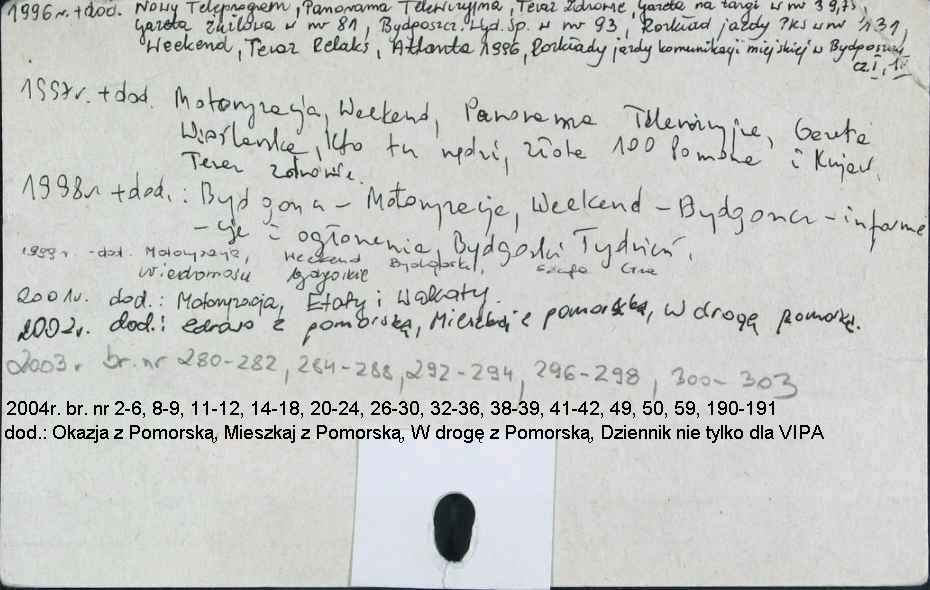 1996r. + dod. Nowy Teleprogram, Panorama Telewizyjna, Teraz Zdrowie, Gazeta na targi w nr 39,73,
Gazeta Żużlowa w nr 81, Bydgoszcz. Wyd. sp. w nr 93, Rozkład jazdy PKS w nr 131,
Weekend, Teraz Relaks, Atlanta 1996, Rozkłady jazdy komunikacji miejskiej w Bydgoszczy
cz. I,
1997r. + dod. Motoryzacja, Weekend, Panorama Telewizyjna, Gazeta
Wiślanka, Kto tu rządzi, złote 100 Pomorza i Kujaw,
Teraz zdrowie.
1998r + dod.: Byd gona - Motoryzacje, Weekend - Bydgoncz - informa
-cje i ogłoszenia, Bydgoski Tydzień.
1999r. - dod. Motoryzacja, Weekend Bydgoski,
Wiadomości Bydgoskie
2001r. dod.: Motoryzacja, Etaty i Wakaty.
2002r. dod.: zdrowo z pomorską, Mieszkaj z pomorską, W drogą pomorską.
2003r br. nr 280-282, 284-288, 292-294, 296-298, 300-303
2004r. br. nr 2-6, 8-9, 11-12, 14-18, 20-24, 26-30, 32-36, 38-39, 41-42, 49, 50, 59, 190-191
dod.: Okazja z Pomorską, Mieszkaj z Pomorską, W drogę z Pomorską, Dziennik nie tylko dla VIPA